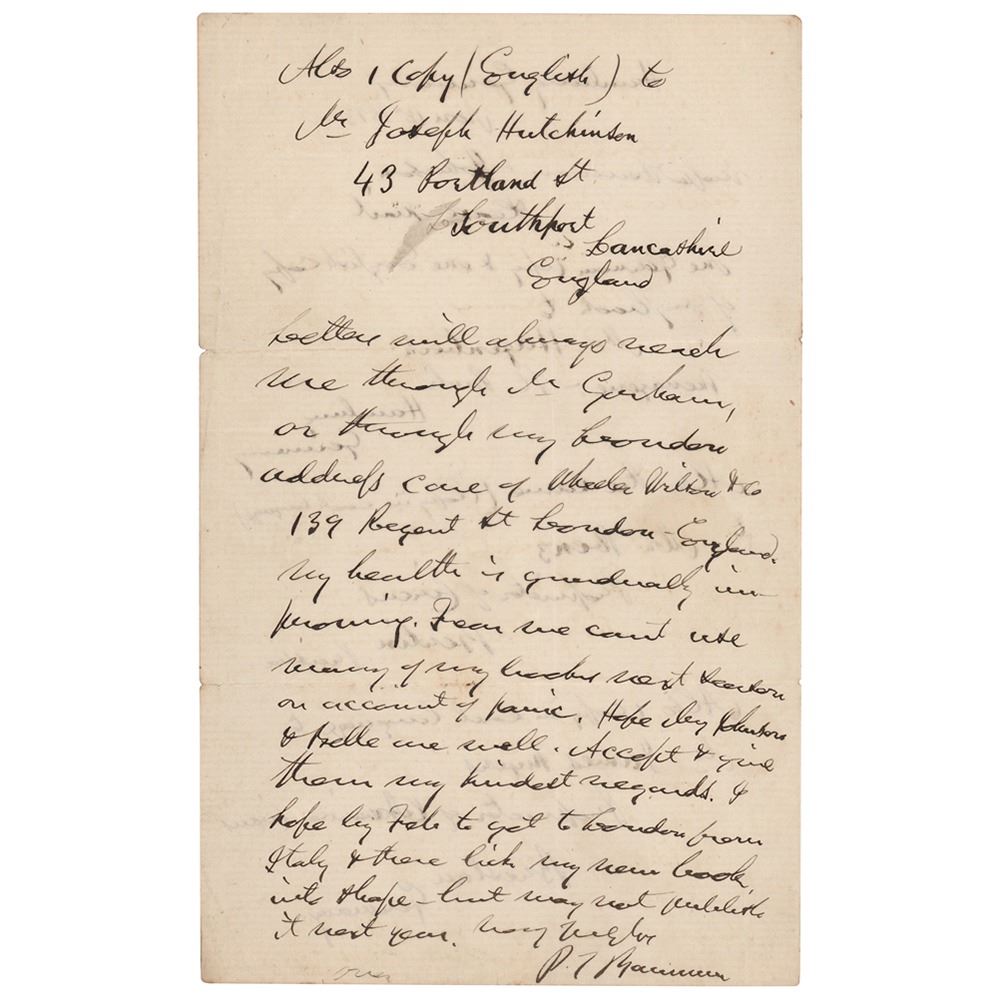 Also 1 Copy (English) to
Mr Joseph Hutchinson
43 Portland St
Southport
Lancashire
England
Letters will always reach
me through Mr Gorham,
or through my London
address care of Wheeler Wilson & Co
139 Regent St London England.
My health is gradually im-
proving. Fear we cant use
many of my books next season
on account of panic. Hope Johnson
& are well. Accept & give
them my kindest regards. I
hope by Feb to get to London from
Italy & there lick my new book
into shape - but may not publish
it next year.
P. T. Barnum
over